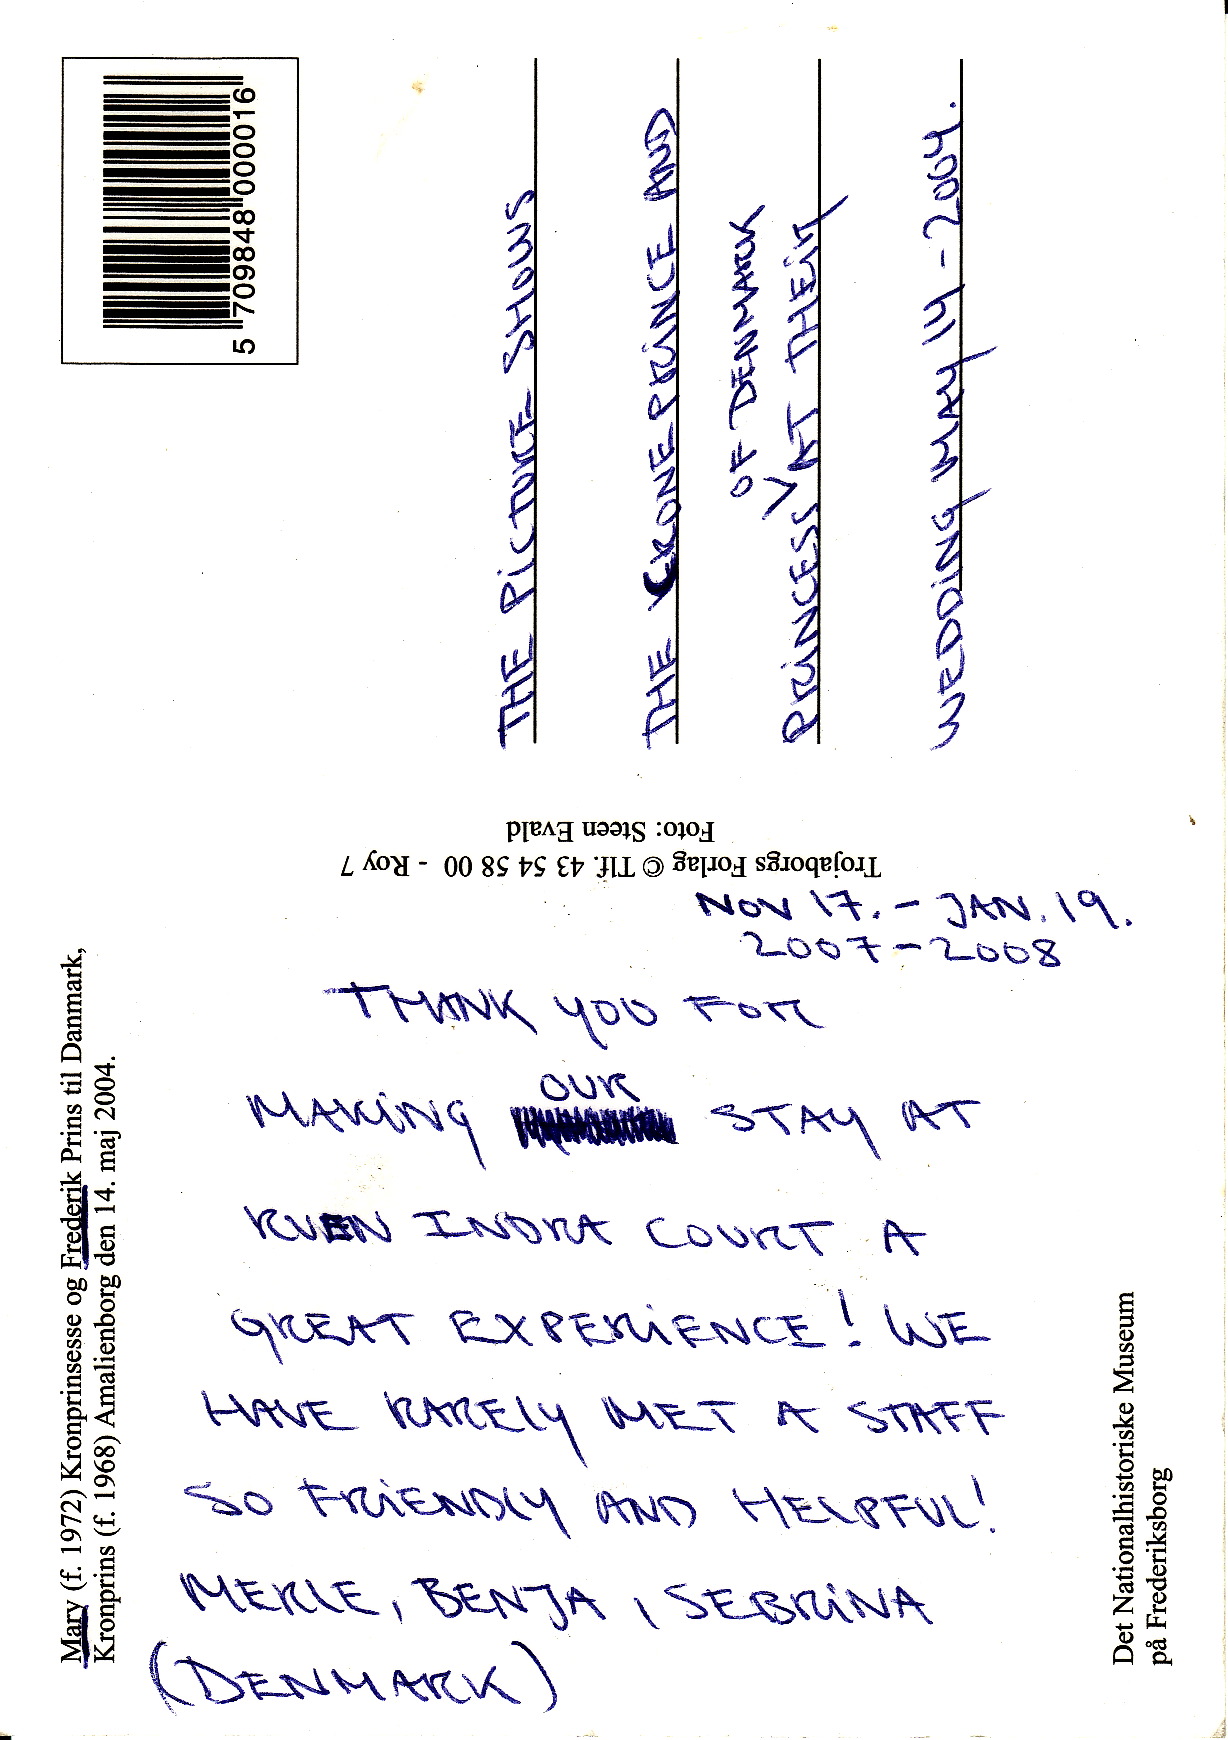 5 709848 000016
THE PICTURE SHOWS
THE CRONEPRINCE AND
OF DENMARK
PRINCESS V AT THEIR
WEDDING MAY 14 - 2004.
Trojaborgs Forlag © Tlf. 43 54 58 00 - Roy 7
Foto: Steen Evald
NOV 17. - JAN. 19.
2007 - 2008
THANK YOU FOR
OUR
MAKING STAY AT
RUEN INDRA COURT A
GREAT EXPERIENCE! WE
HAVE RARELY MET A STAFF
SO FRIENDLY AND HELPFUL!
MERLE, BENJA, SEBRINA
(DENMARK)
Mary (f. 1972) Kronprinsesse og Frederik Prins til Danmark,
Kronprins (f. 1968) Amalienborg den 14. maj 2004.
Det Nationalhistoriske Museum
på Frederiksborg